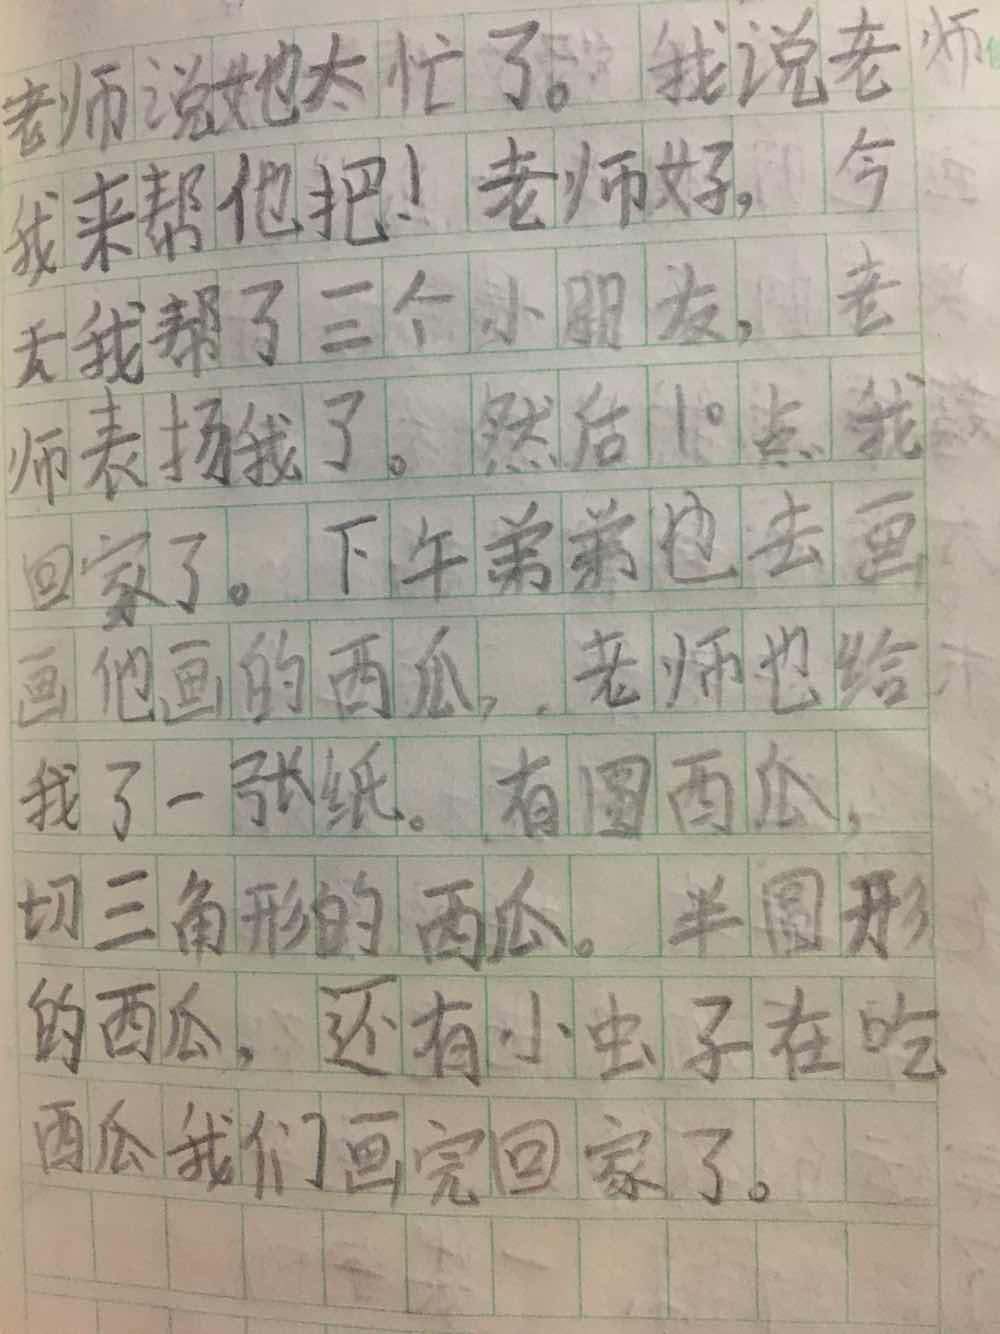 老师说她太忙了。我说老师
我来帮他把！老师好，今
天我帮了三个小朋友，老
师表扬我了。然后10点我
回家了。下午弟弟也去画
画他画的西瓜，老师也给
我了一张纸。有圆西瓜，
切三角形的西瓜。半圆形
的西瓜，还有小虫子在吃
西瓜我们画完回家了。